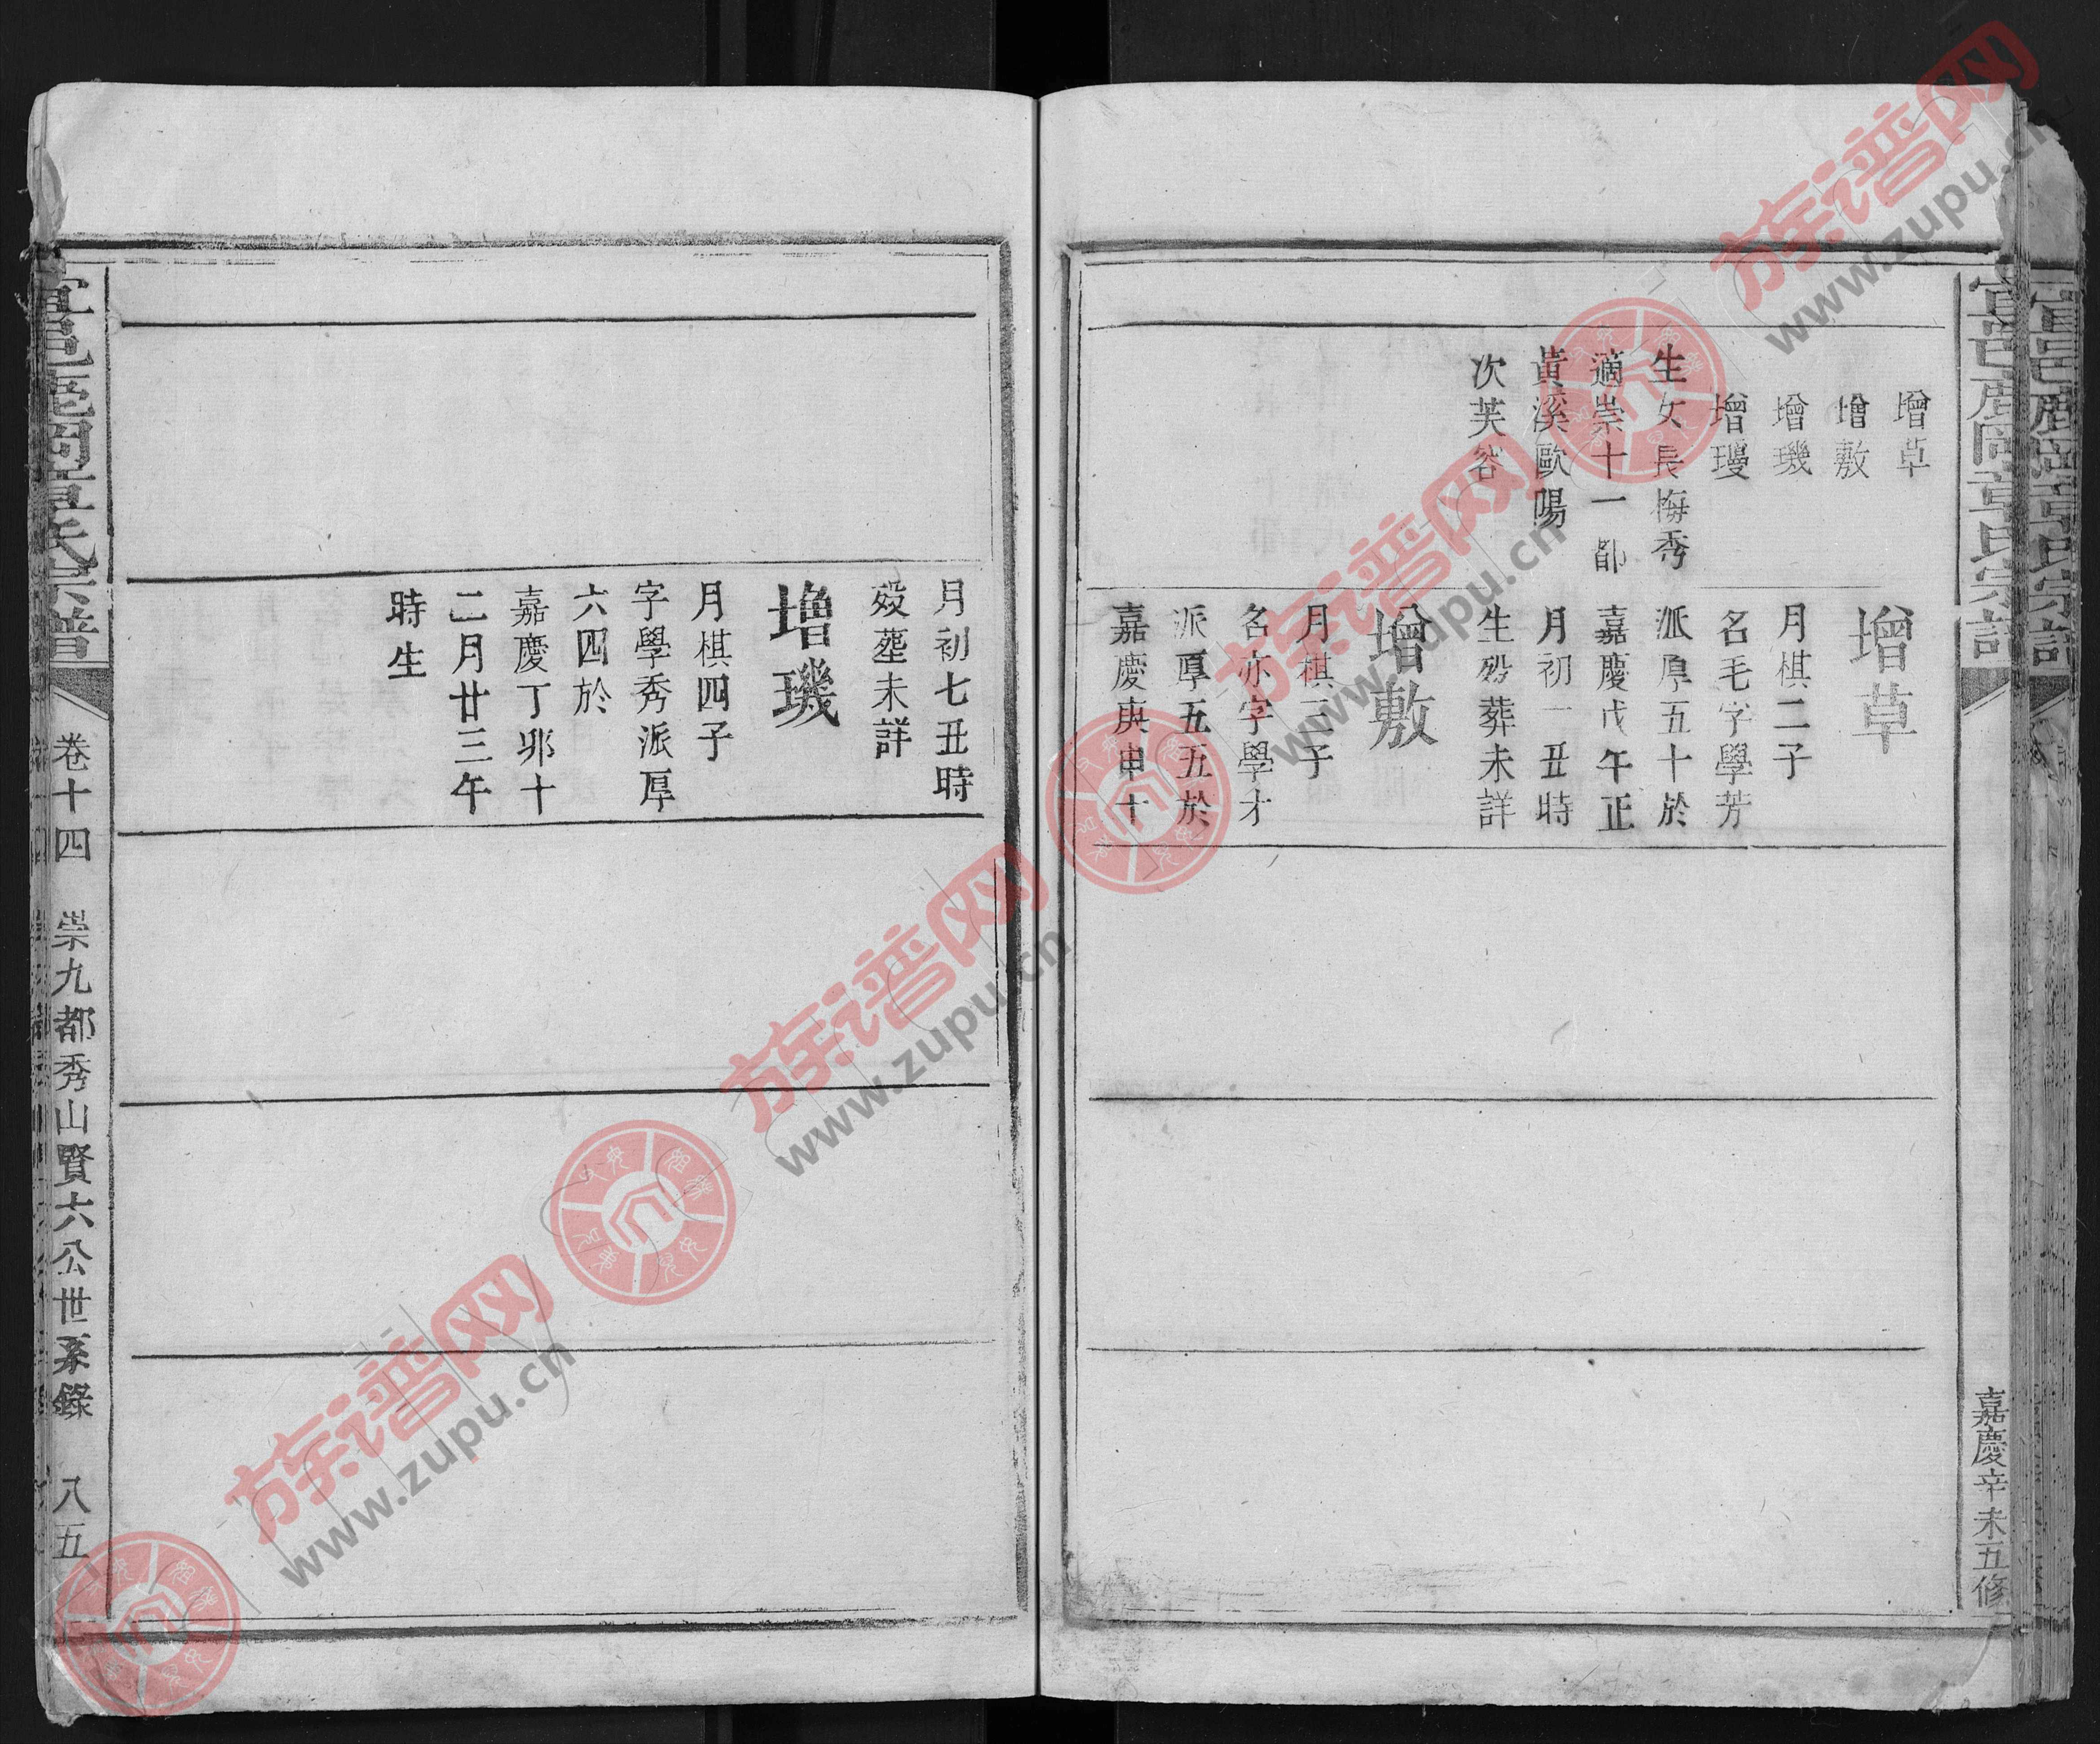 增草
增敷
增璣
增璦
生女長梅秀
適崇十一都
黃溪歐陽
次芙容
增草
月棋二子
名毛字學芳
派厚五十於
嘉慶戊午正
月初一丑時
生歿葬未詳
增敷
月棋三子
名亦字學才
派厚五五於
嘉慶庚申十
嘉慶辛未五修
月初七丑時
歿塟未詳
增璣
月棋四子
字學秀派厚
六四於
嘉慶丁邜十
二月廿三午
時生
卷十四
崇九都秀山賢六公世系錄
八五
族谱网
www.zupu.cn
族谱网
www.zupu.cn
族谱网
www.zupu.cn
族谱网
www.zupu.cn